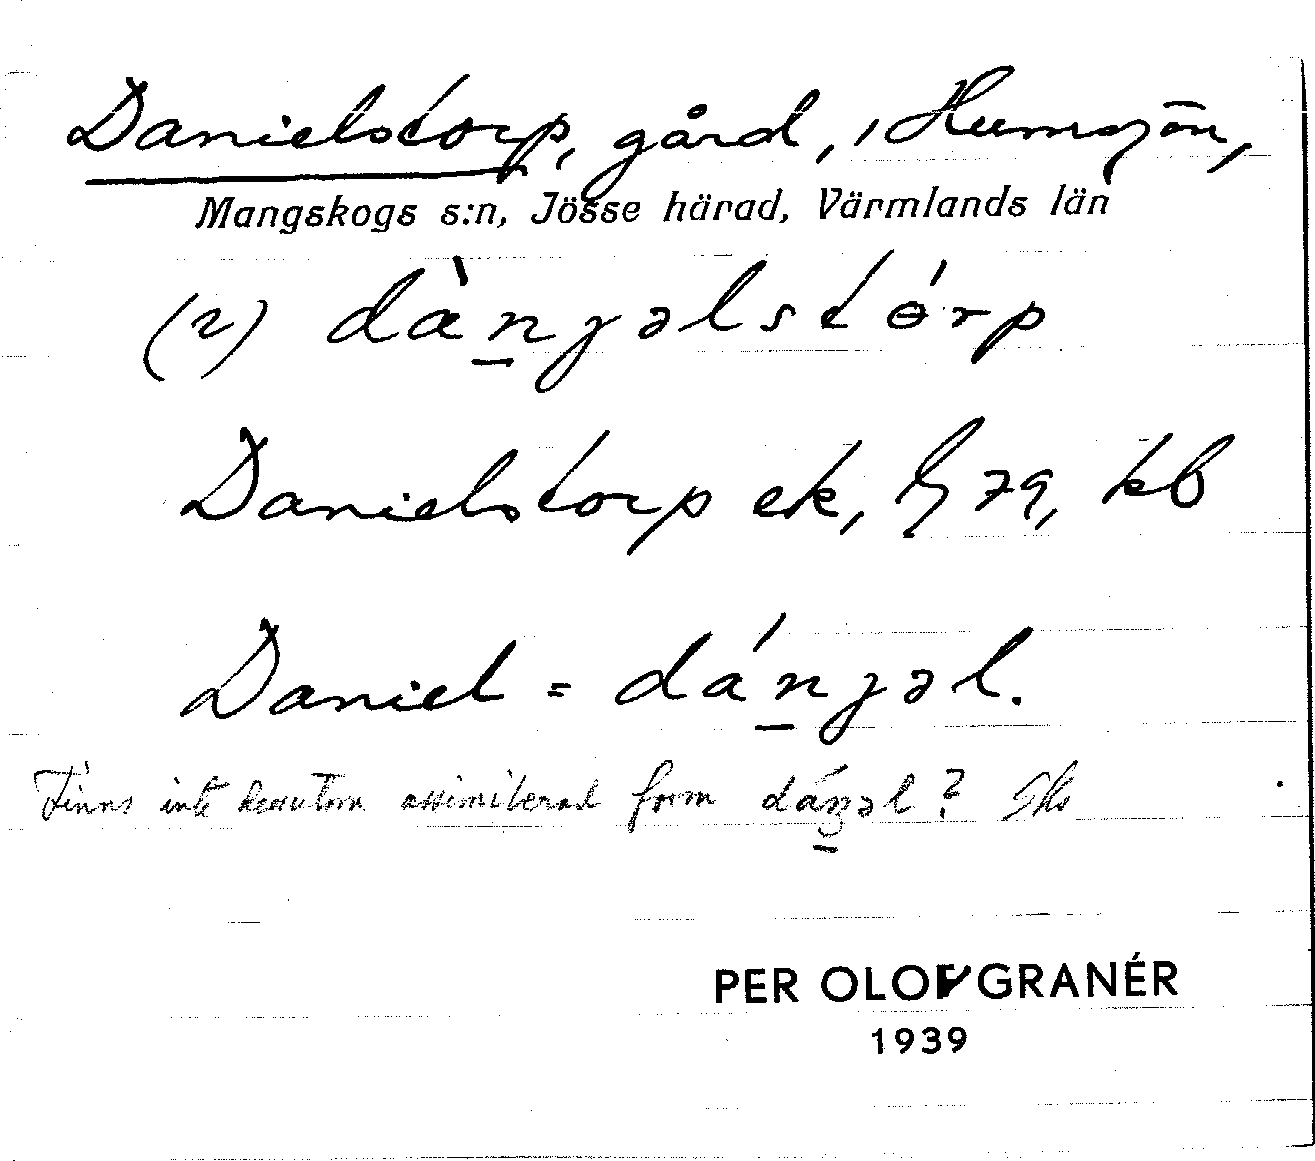 Danielstorp, gård, i Humsjön,
Mangskogs s:n, Jösse härad, Värmlands län
(2) dàn̲jəlstɵ́rp
Danielstorp ek, 79, kb
Daniel = dán̲jəl.
Finns inte dessutom assimilerad form ?
PER OLOF GRANÉR
1939